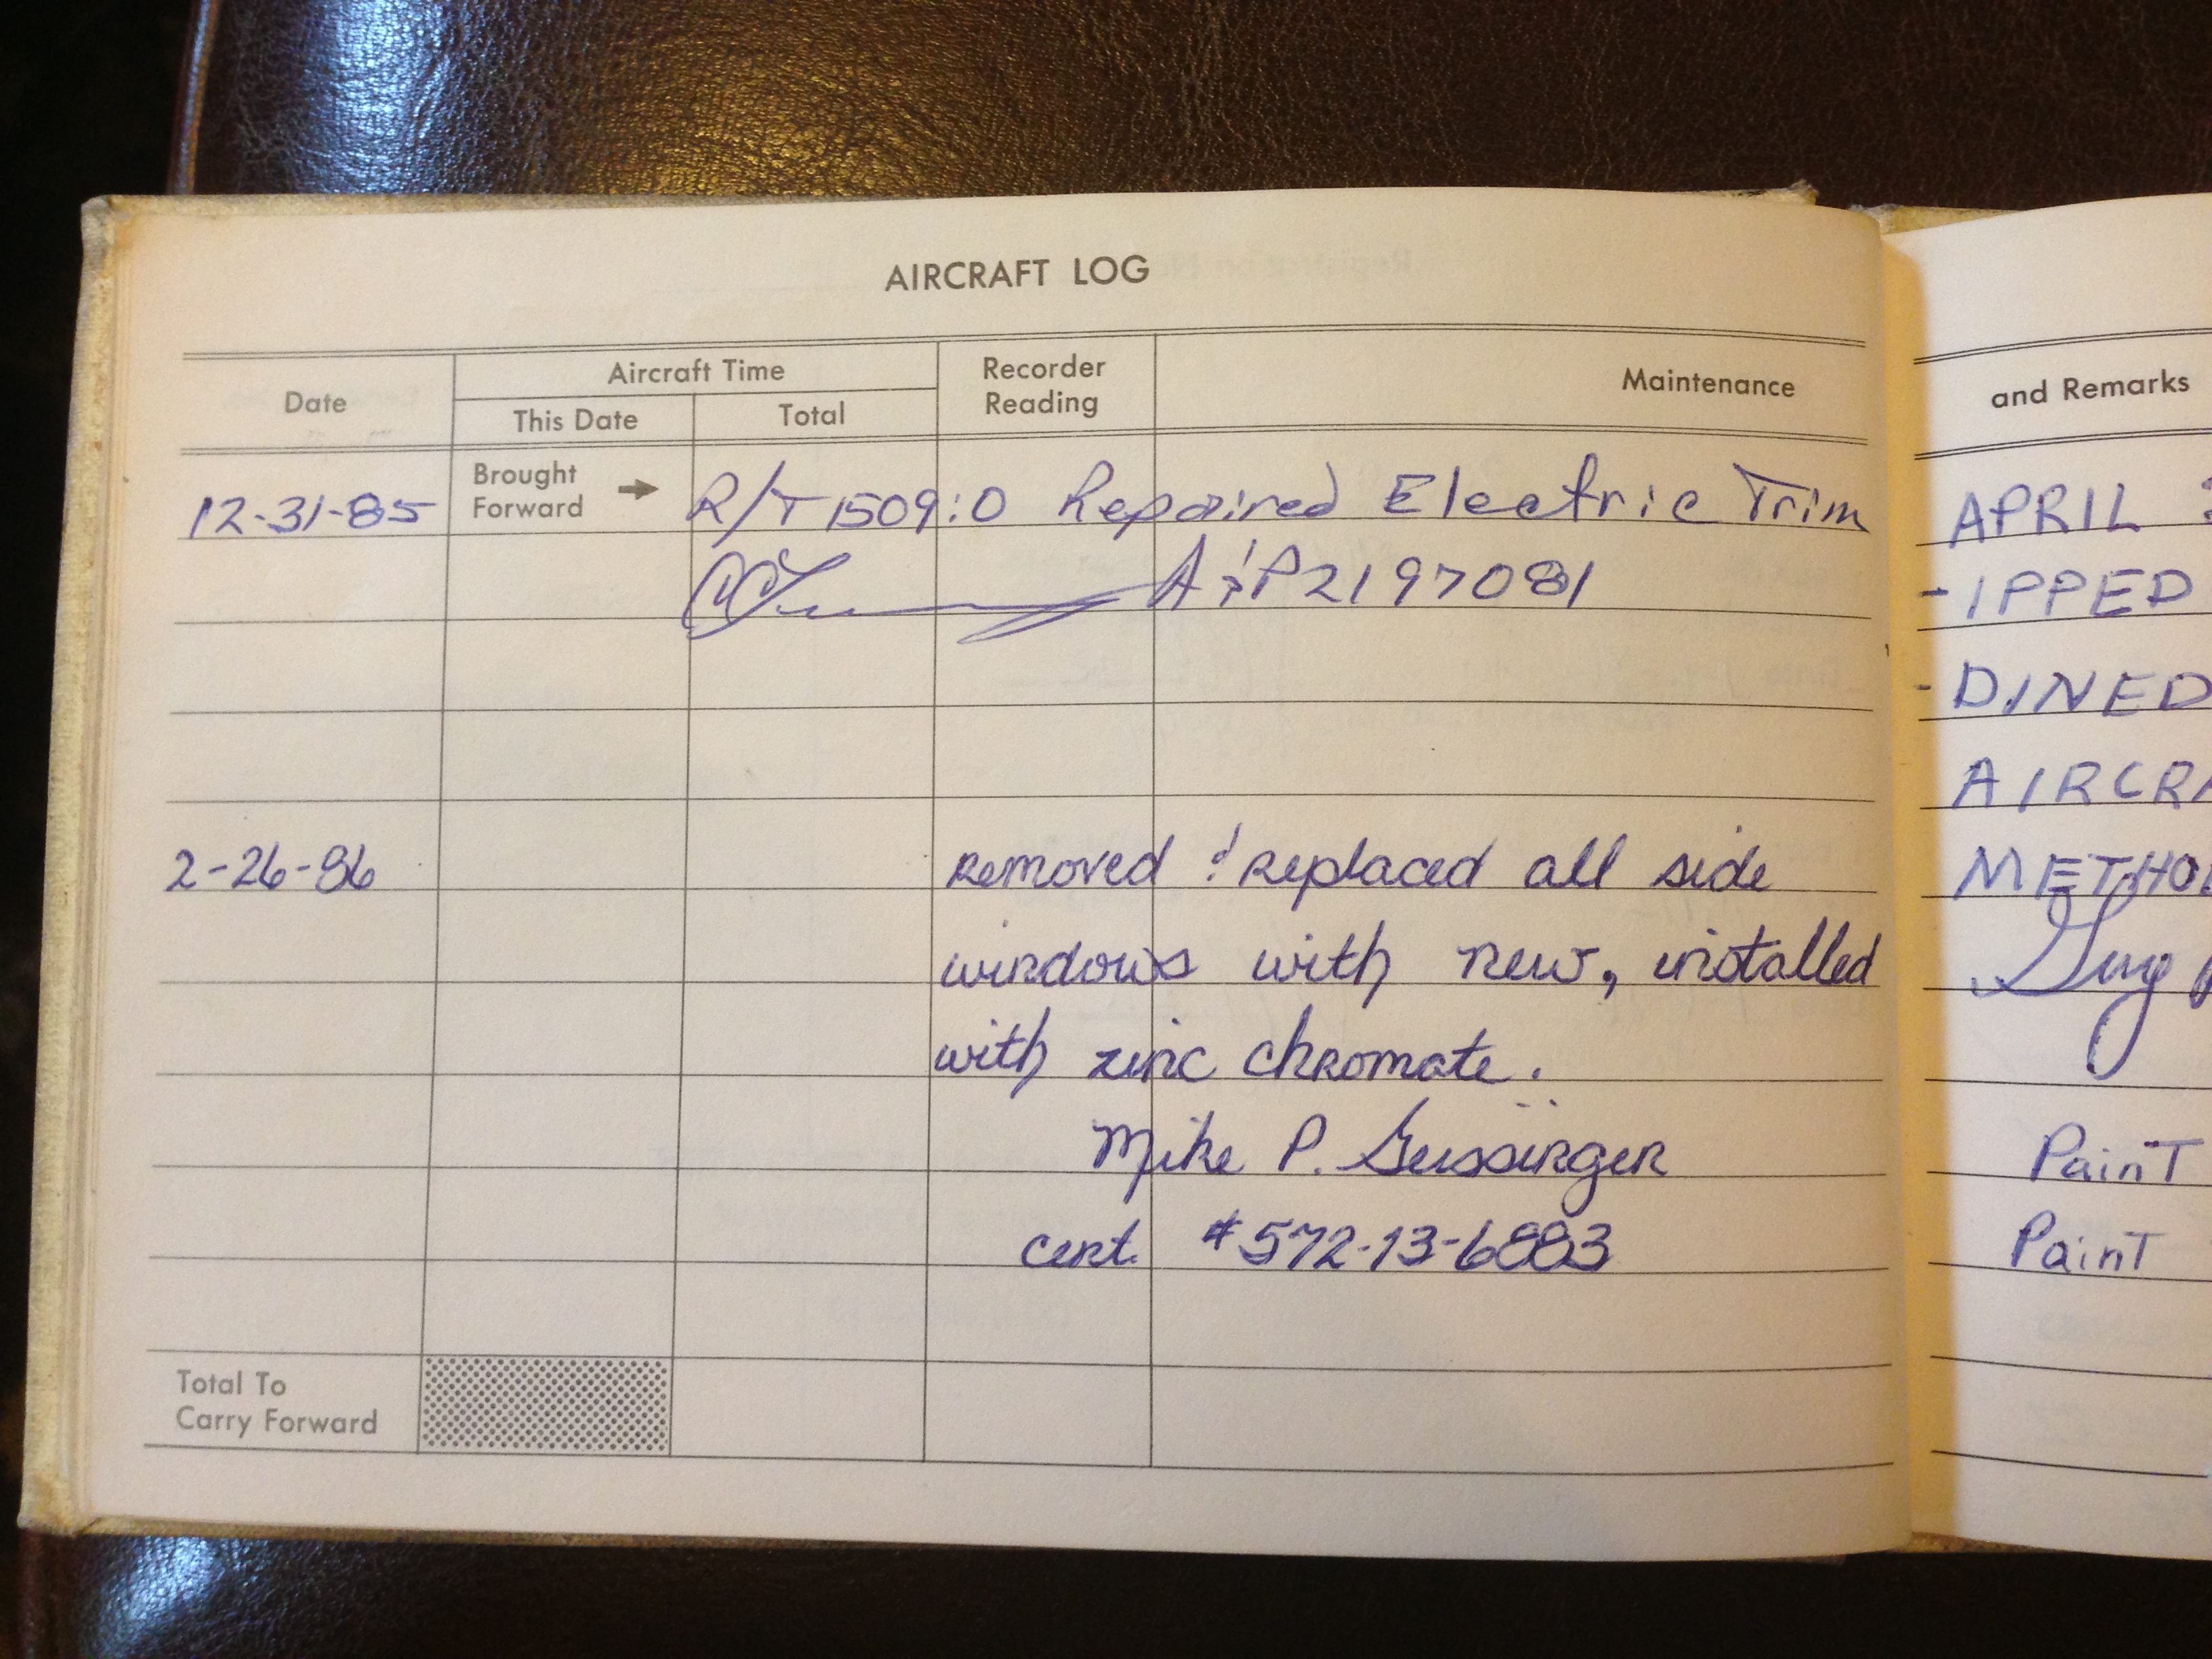 AIRCRAFT LOG
Date
Aircraft Time
This Date
Total
Recorder
Reading
Maintenance
12-31-85
Brought
Forward
R/T 1509:0 Repaired Electric Trim
A&P 2197081
2-26-86
Removed & Replaced all side
windows with new, installed
with zinc chromate.
Mike P. Geissinger
cert. #572-13-6883
Total To
Carry Forward
and Remarks
APRIL
-IPPED
-DINED
AIRCRA
METHO
Guy
Paint
Paint